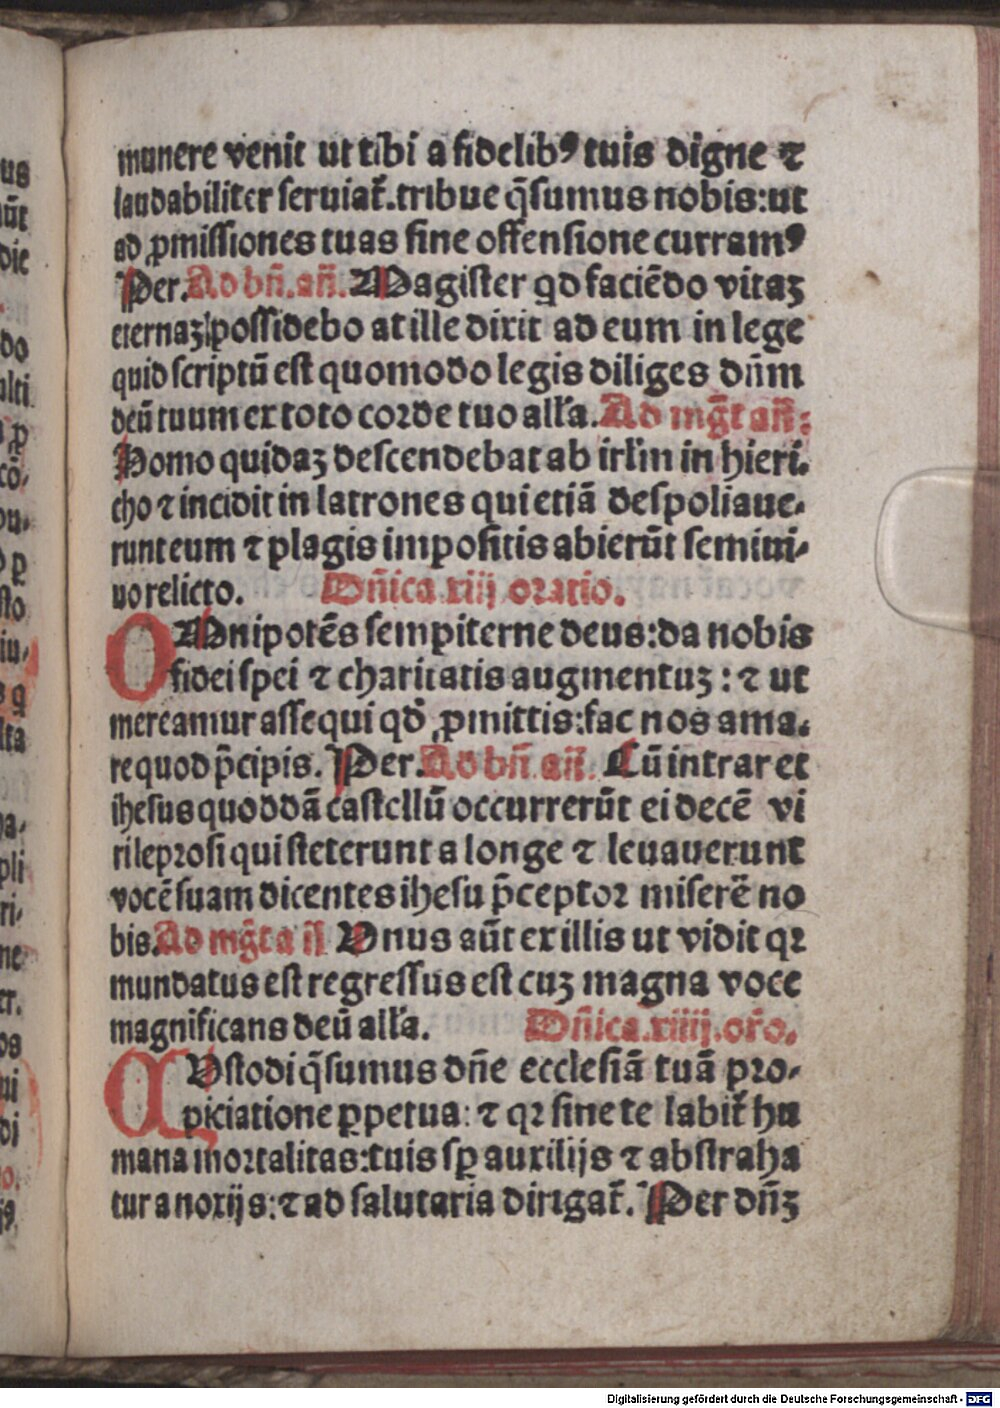 munere venit ut tibi a fidelibꝰ tuis digne ⁊
laudabiliter seruiat᷑.tribue q̄sumus nobis:ut
ad ꝓmissiones tuas sine offensione curramꝰ
Per. Ad bn̄. an̄. Magister qd faciēdo vitaꝫ
eternaꝫ possidebo at ille dixit ad eum in lege
quid scriptū est quomodo legis diliges dn̄m
deū tuum ex toto corde tuo all'a. Ad mg̅t an̄:
Homo quidaꝫ descendebat ab irl'm in hieri-
cho ⁊ incidit in latrones qui etiā despoliaue-
runt eum ⁊ plagis impositis abierūt semiui-
uo relicto. Dn̄ica xiij oratio.
OMnipotēs sempiterne deus:da nobis
fidei spei ⁊ charitatis augmentuꝫ: ⁊ ut
mereamur assequi qd̄ ꝓmittis:fac nos ama-
re quod p̄cipis. Per. Ad bn̄ an̄. Cū intraret
ihesus quoddā castellū occurrerūt ei decē vi
ri leprosi qui steterunt a longe ⁊ levauerunt
vocē suam dicentes ihesu p̄ceptor miserē no
bis. Ad mg̅t a n̄ Unus aūt ex illis ut vidit qꝛ
mundatus est regressus est cuꝫ magna voce
magnificans deū all'a. Dn̄ica.xiiij.or̄o.
CUstodi q̄sumus dn̄e ecclesiā tuā pro-
piciatione ꝑpetua: ⁊ qꝛ sine te labit᷑ hu
mana mortalitas:tuis sꝑ auxilijs ⁊ abstraha
tur a noxijs: ⁊ ad salutaria dirigat᷑. Per dn̄ꝫ
Digitalisierung gefördert durch die Deutsche Forschungsgemeinschaft - DFG